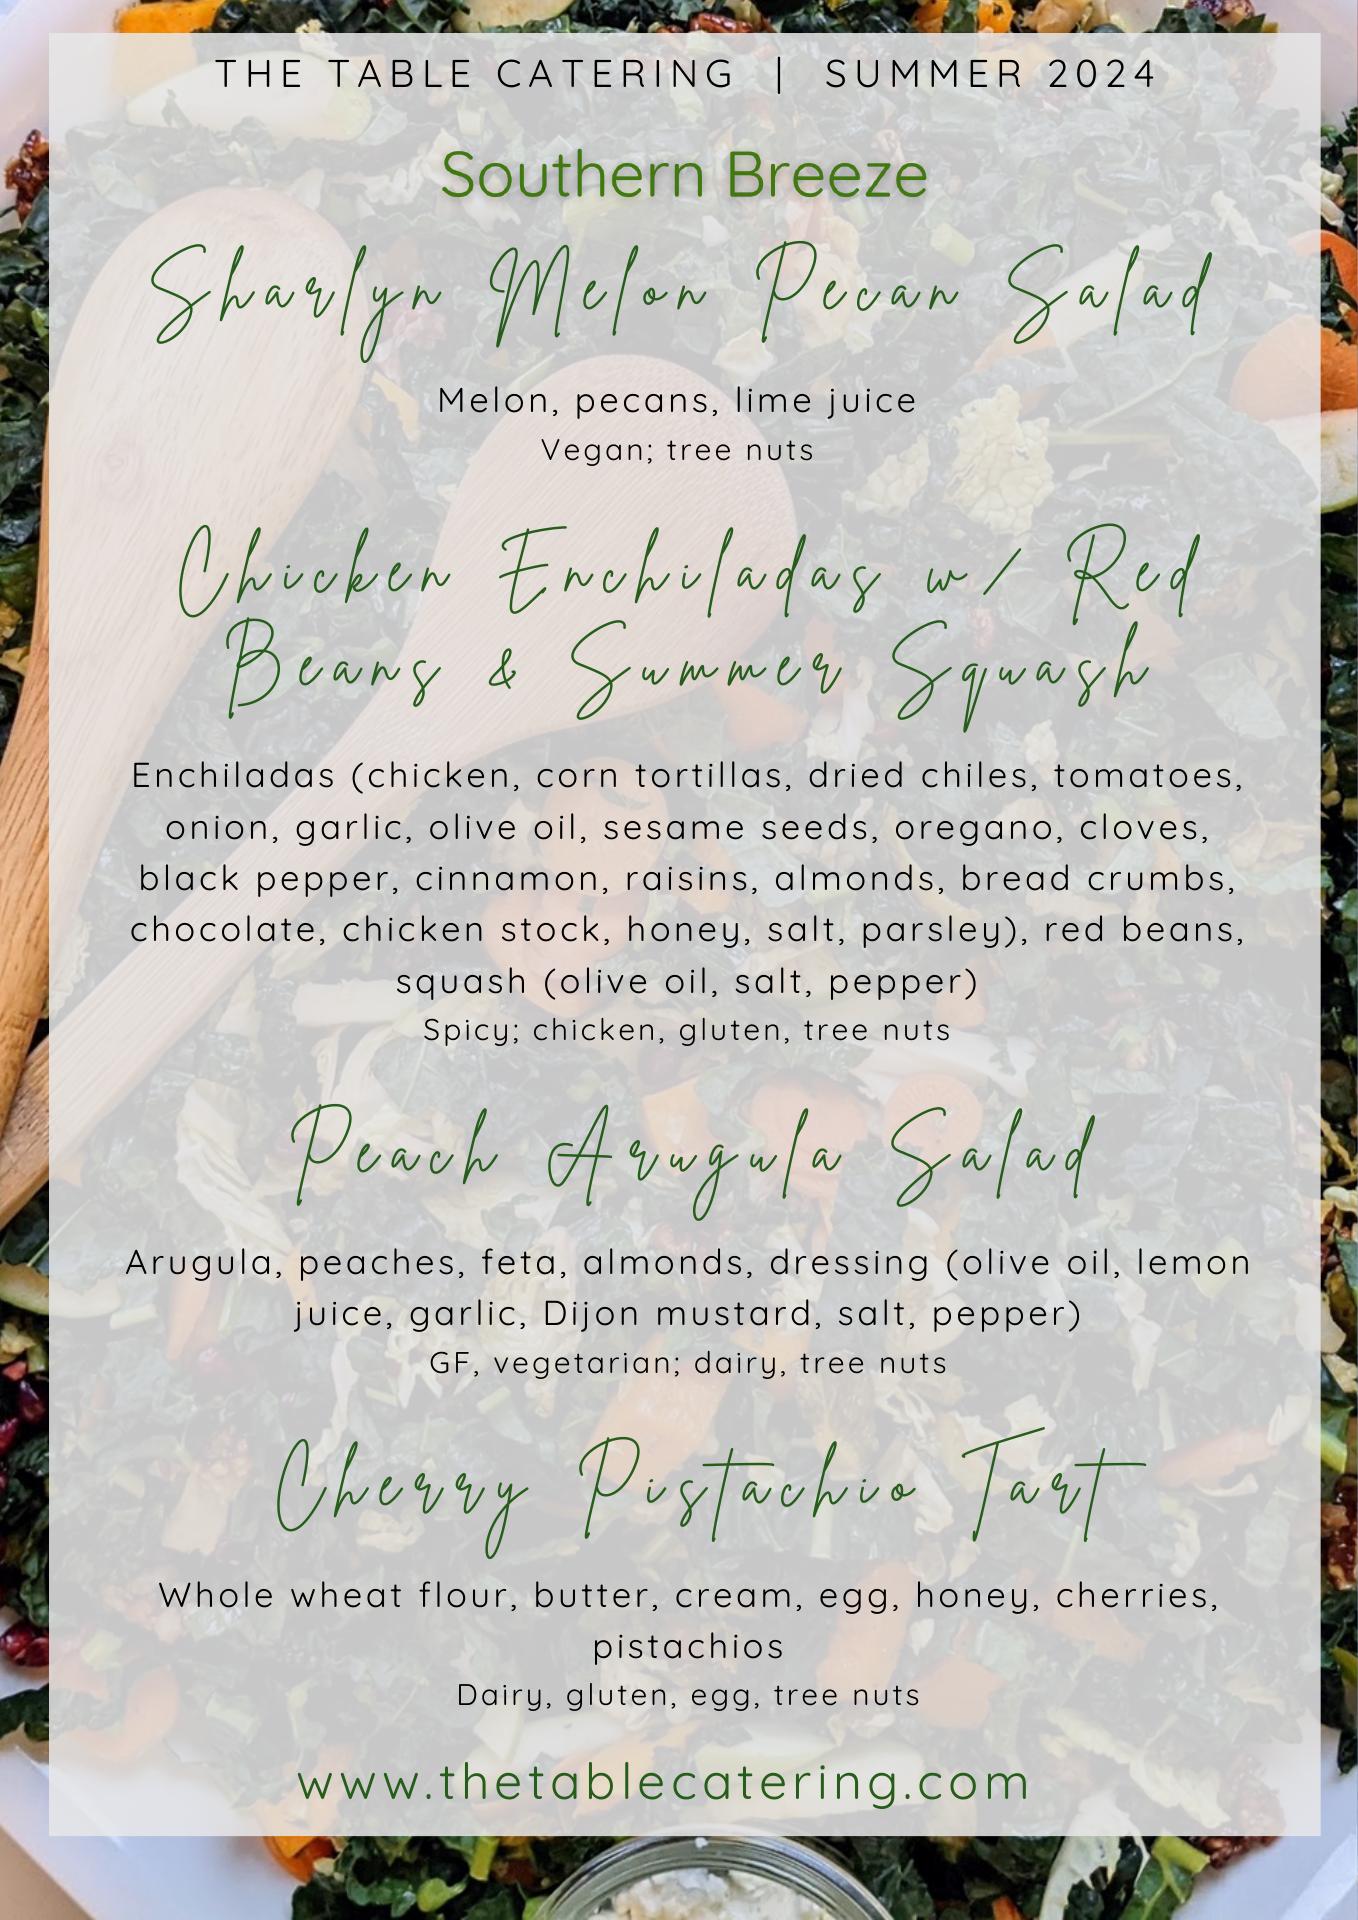 THE TABLE CATERING | SUMMER 2024
Southern Breeze
Sharlyn Melon Pecan Salad
Melon, pecans, lime juice
Vegan; tree nuts
Chicken Enchiladas w/ Red
Beans & Summer Squash
Enchiladas (chicken, corn tortillas, dried chiles, tomatoes,
onion, garlic, olive oil, sesame seeds, oregano, cloves,
black pepper, cinnamon, raisins, almonds, bread crumbs,
chocolate, chicken stock, honey, salt, parsley), red beans,
squash (olive oil, salt, pepper)
Spicy; chicken, gluten, tree nuts
Peach Arugula Salad
Arugula, peaches, feta, almonds, dressing (olive oil, lemon
juice, garlic, Dijon mustard, salt, pepper)
GF, vegetarian; dairy, tree nuts
Cherry Pistachio Tart
Whole wheat flour, butter, cream, egg, honey, cherries,
pistachios
Dairy, gluten, egg, tree nuts
www.thetablecatering.com